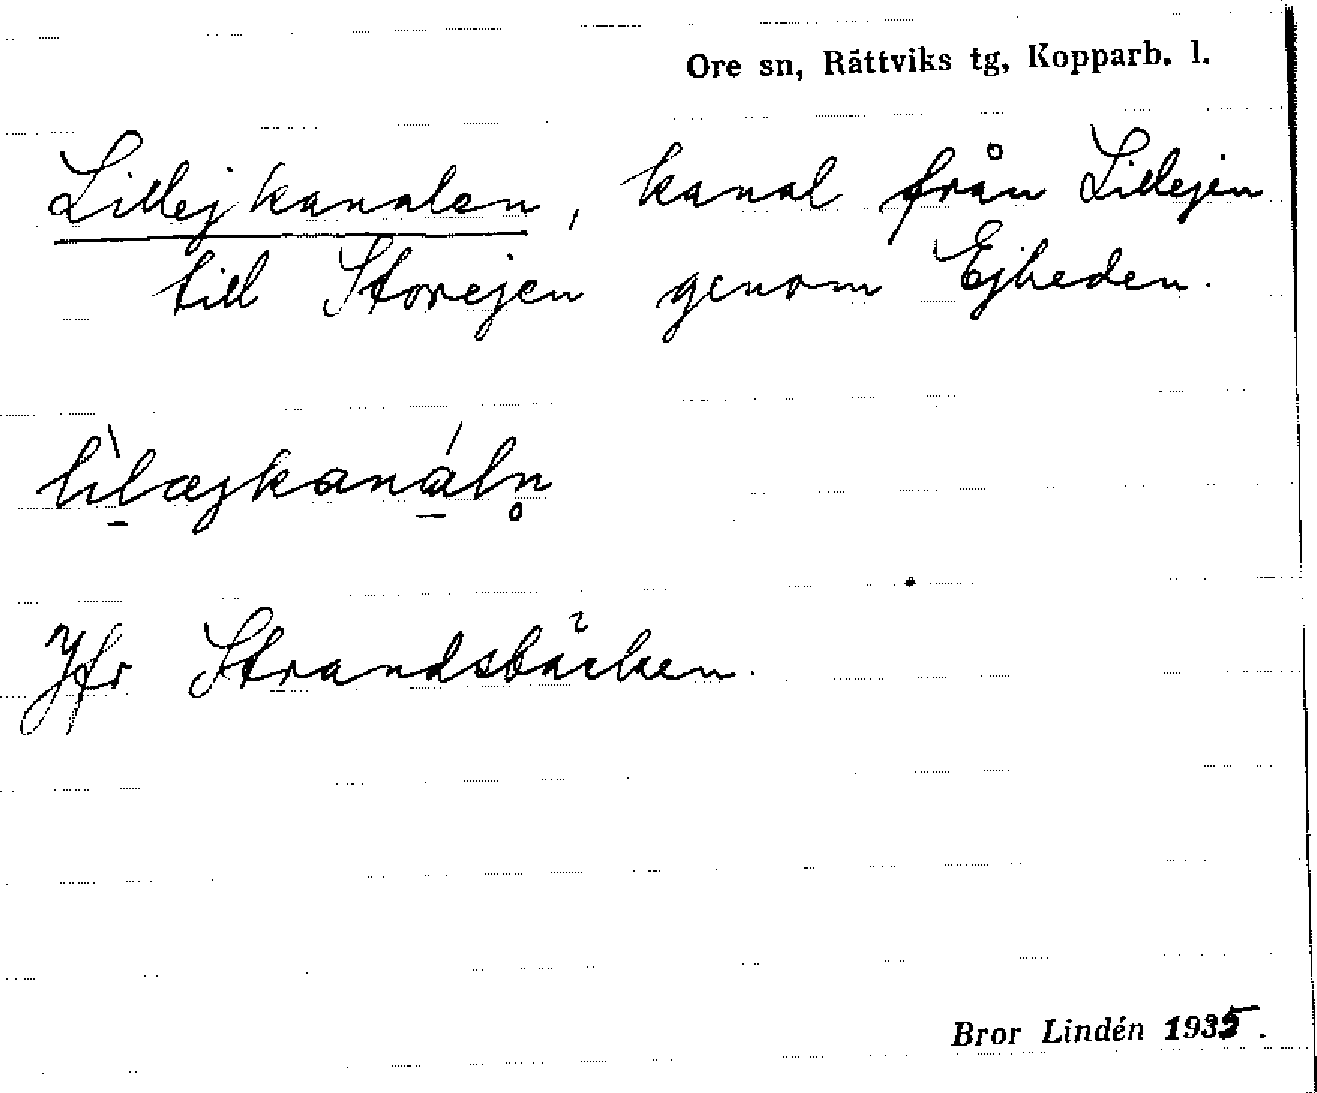 Ore sn, Rättviks tg, Kopparb. l.
Lillejkanalen, kanal från Lillejen
till Storejen genom Ejheden.
lìlæjkanáln̥
Jfr Strandsbäcken.
Bror Lindén 1935.